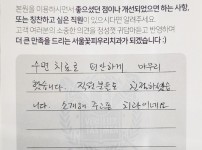 본원을 이용하시면서 좋으셨던 점이나 개선되었으면 하는 사항,
또는 칭찬하고 싶은 직원이 있으시다면 알려주세요.
고객 여러분의 소중한 의견을 소중히 귀담아듣고 반영하여
더 큰 만족을 드리는 서울꽃피우리치과가 되겠습니다 :)
수면 치료로 편안하게 마무리
했습니다. 직원분들도 친절하셨습
니다. 소개해 주고픈 치과이네요